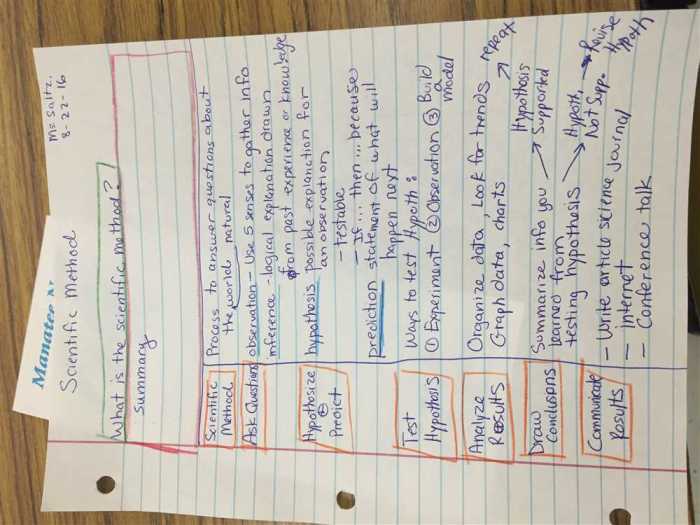 Manatee
Ms. Saltz.
8-22-16
Scientific Method
What is the scientific method?
Summary
Scientific Method
Process to answer questions about
the world natural
Ask Questions
observation - Use 5 senses to gather info
inference - logical explanation drawn
from past experience or knowledge
Hypothosize + Predict
hypothesis possible explanation for
an observation
- testable
- If... then... because
prediction statement of what will
happen next
Test Hypothosis
Ways to test Hypoth:
① Experiment ② Observation ③ Build a model
Analyze Results
Organize data, Look for trends
Graph data, charts
repeat
Draw Conclusions
Summarize info you
learned from
testing hypothesis
Hypothesis Supported
Hypoth. Not Supp.
Revise Hypoth
Communicate Results
- Write article science journal
- internet
- Conference talk